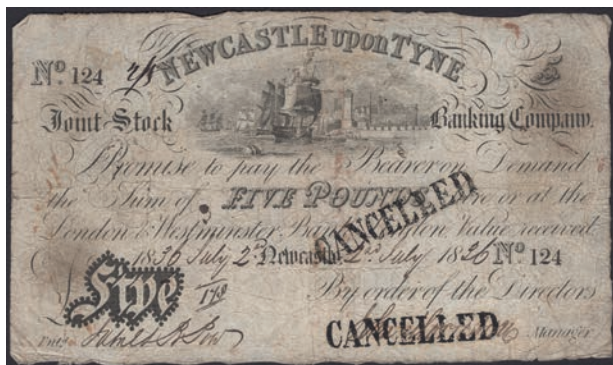 NEWCASTLE upon TYNE
No. 124
Joint Stock Banking Company.
Promise to pay the Bearer on Demand
the Sum of FIVE POUNDS or at the
London & Westminster Value received
1836 July 2 Newcastle 2 July 1836 No. 124
£ Five
By order of the Directors
CANCELLED
CANCELLED
Manager